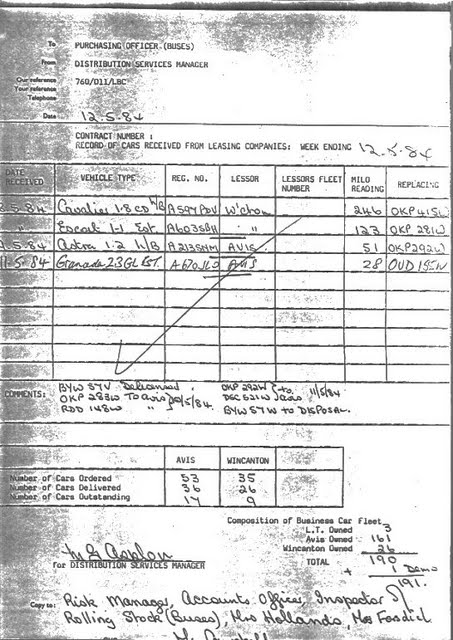 To PURCHASING OFFICER (BUSES)
From DISTRIBUTION SERVICES MANAGER
Our reference 760/011/LBC
Your reference
Telephone
Date 12.5.84
CONTRACT NUMBER :
RECORD OF CARS RECEIVED FROM LEASING COMPANIES: WEEK ENDING 12.5.84
DATE RECEIVED VEHICLE TYPE REG. NO. LESSOR LESSORS FLEET NUMBER MILO READING REPLACING
.5.84 Cavalier 1.8 CD H/B W'cton 246 OKP 415W
" Escort 1.1 Est. A603SBH " 123 OKP 281W
.5.84 Astra 1.2 H/B A213SNM AVIS 51 OKP292W
11.5.84 Granada 2.3GL EST. AVIS 28 OUD 195W
COMMENTS: BYW 57V OKP 292W } to 11/5/84
OKP 283W To avis } /5/84. DEC 521W } avis
RDD 148W " BYW 57W to DISPOSAL.
AVIS WINCANTON
Number of Cars Ordered 53 35
Number of Cars Delivered 36 26
Number of Cars Outstanding 17 9
Composition of Business Car Fleet
L.T. Owned 3
Avis Owned 161
Wincanton Owned 26
TOTAL 190
+ 1 Demo
191.
for DISTRIBUTION SERVICES MANAGER
Copy to: Risk Manager, Accounts Officer, Inspector
Rolling Stock (Buses), Mrs Hollands, Mrs